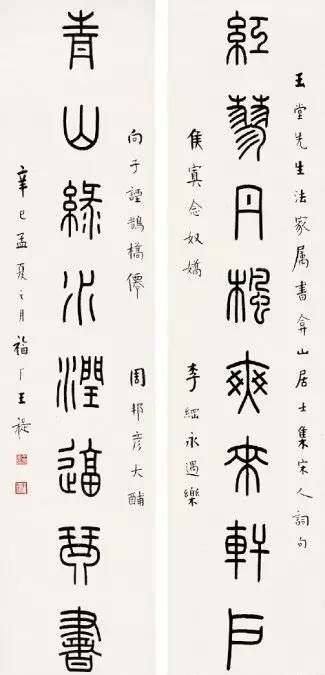 玉堂先生法家属書弇山居士集宋人詞句
紅蓼丹楓爽來軒戶
侯寘念奴嬌 李綱永遇樂
向子諲鵲橋僊 周邦彦大酺
青山綠水潤逼琴書
辛巳孟夏之月福厂王禔